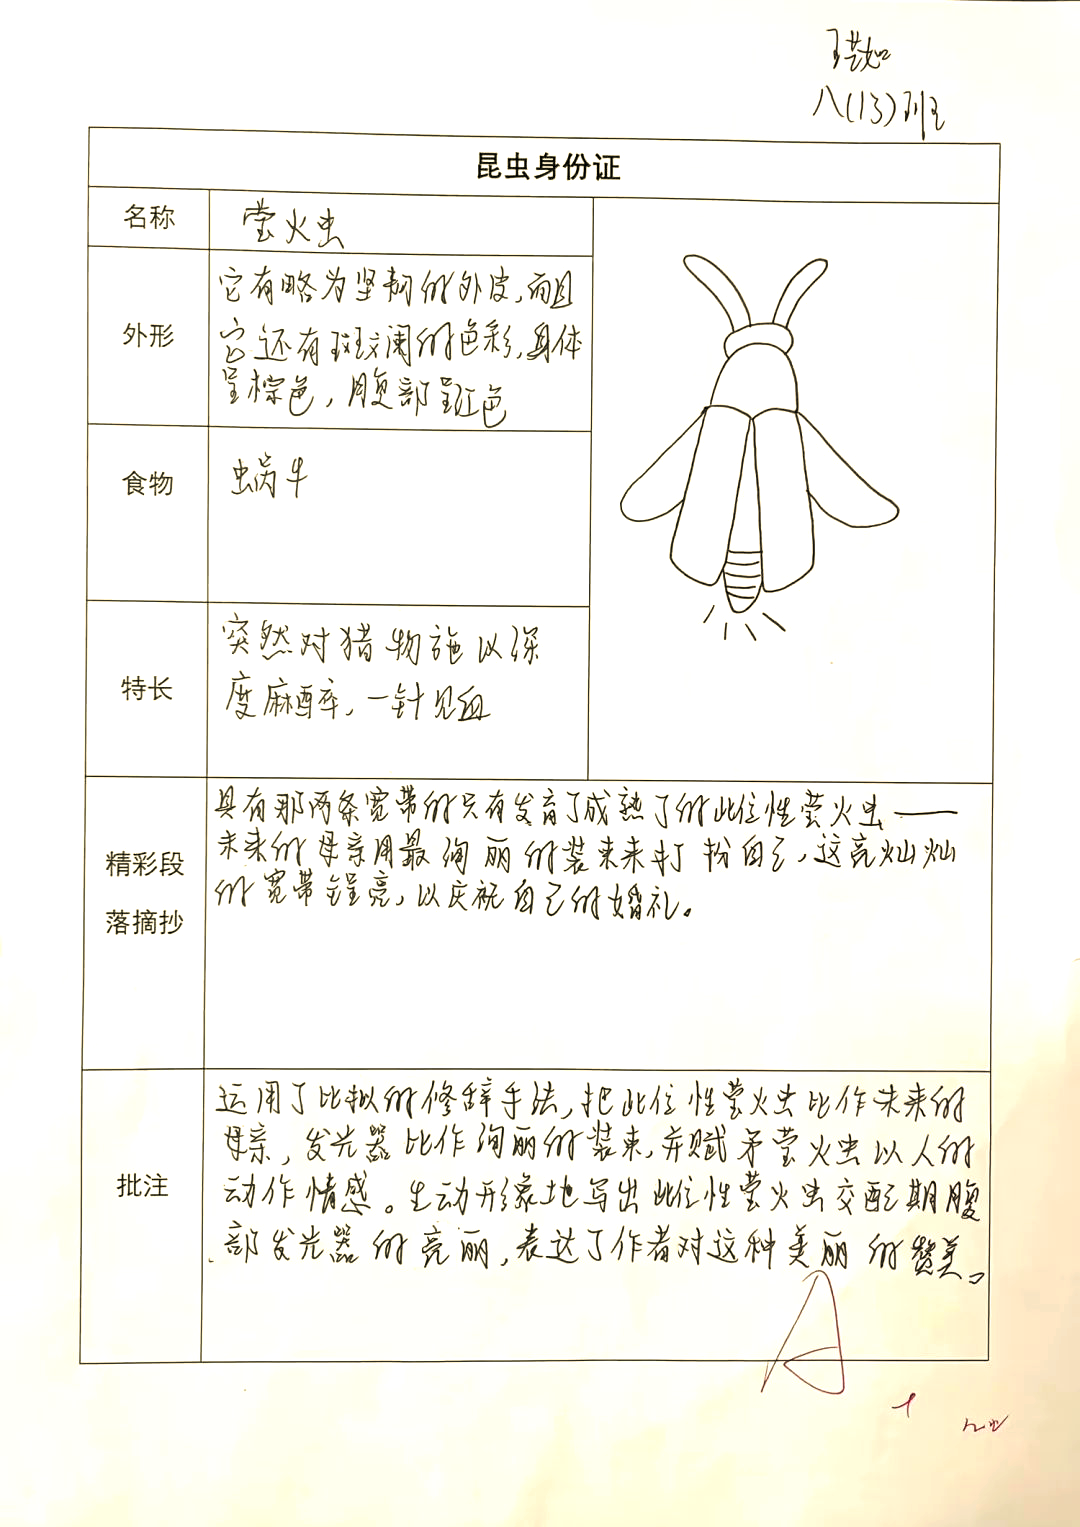 王芸如
八(13)班
昆虫身份证
名称
萤火虫
外形
它有略为坚韧的外皮,而且
它还有斑斓的色彩,身体
呈棕色,腹部呈红色
食物
蜗牛
特长
突然对猎物施以深
度麻醉,一针见血
精彩段
落摘抄
具有那两条宽带的只有发育了成熟了的此位性萤火虫——
未来的母亲用最绚丽的装束来打扮自己,这亮灿灿
的宽带锃亮,以庆祝自己的婚礼。
批注
运用了比拟的修辞手法,把此位性萤火虫比作未来的
母亲,发光器比作绚丽的装束,并赋予萤火虫以人的
动作情感。生动形象地写出此位性萤火虫交配期腹
部发光器的亮丽,表达了作者对这种美丽的赞美。
A